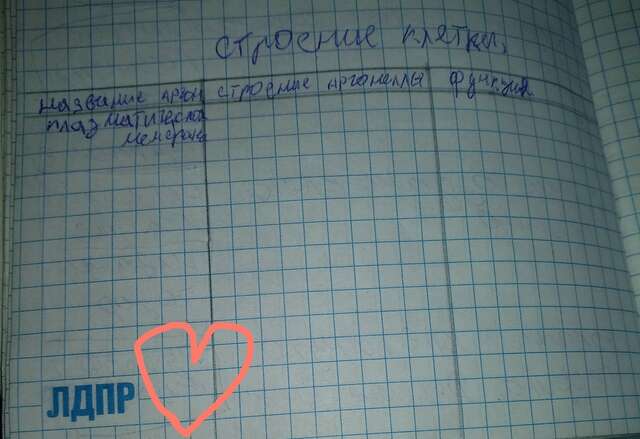 строение клетки.
название орган строение органеллы функция
плазматическая
мембрана
ЛДПР